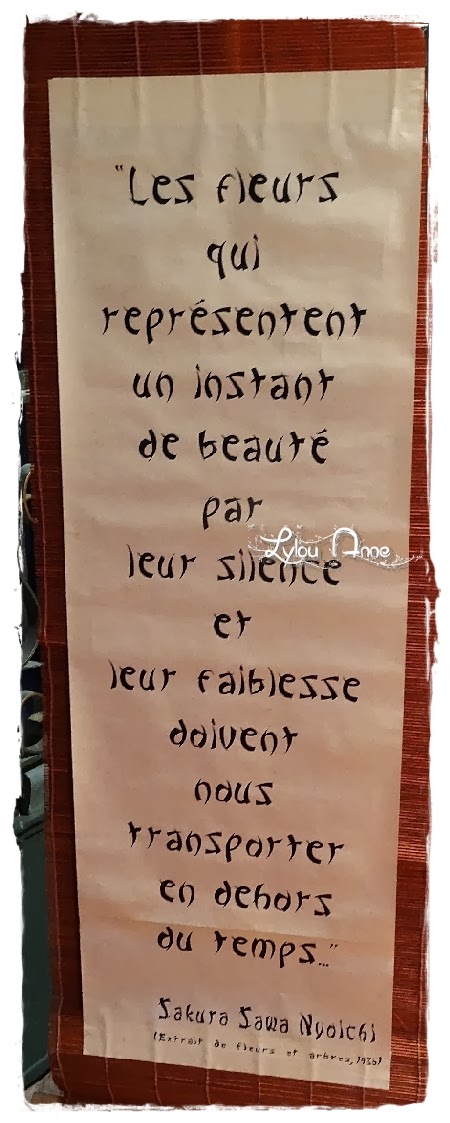 "Les fleurs
qui
représentent
un instant
de beauté
par
Lylou Anne
leur silence
et
leur faiblesse
doivent
nous
transporter
en dehors
du temps..."
Sakura Sawa Nyoichi
(Extrait de fleurs et arbres, 1936)